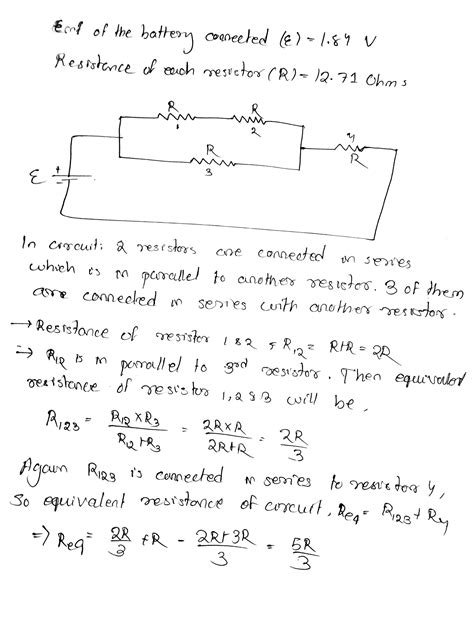 Emf of the battery connected (ε) = 1.84 V
Resistance of each resistor (R) = 12.71 Ohms
R
1
R
2
R
3
4
R
ε
+
-
In circuit: 2 resistors are connected in series
which is in parallel to another resistor. 3 of them
are connected in series with another resistor.
→ Resistance of resistor 1 & 2, R₁₂ = R+R = 2R
→ R₁₂ is in parallel to 3rd resistor. Then equivalent
resistance of resistor 1,2 & 3 will be,
R₁₂₃ = (R₁₂ × R₃)/(R₁₂ + R₃) = (2R×R)/(2R+R) = 2R/3
Again R₁₂₃ is connected in series to resistor 4,
So equivalent resistance of circuit, Req = R₁₂₃ + R₄
⇒ Req = 2R/3 + R - (2R+3R)/3 = 5R/3